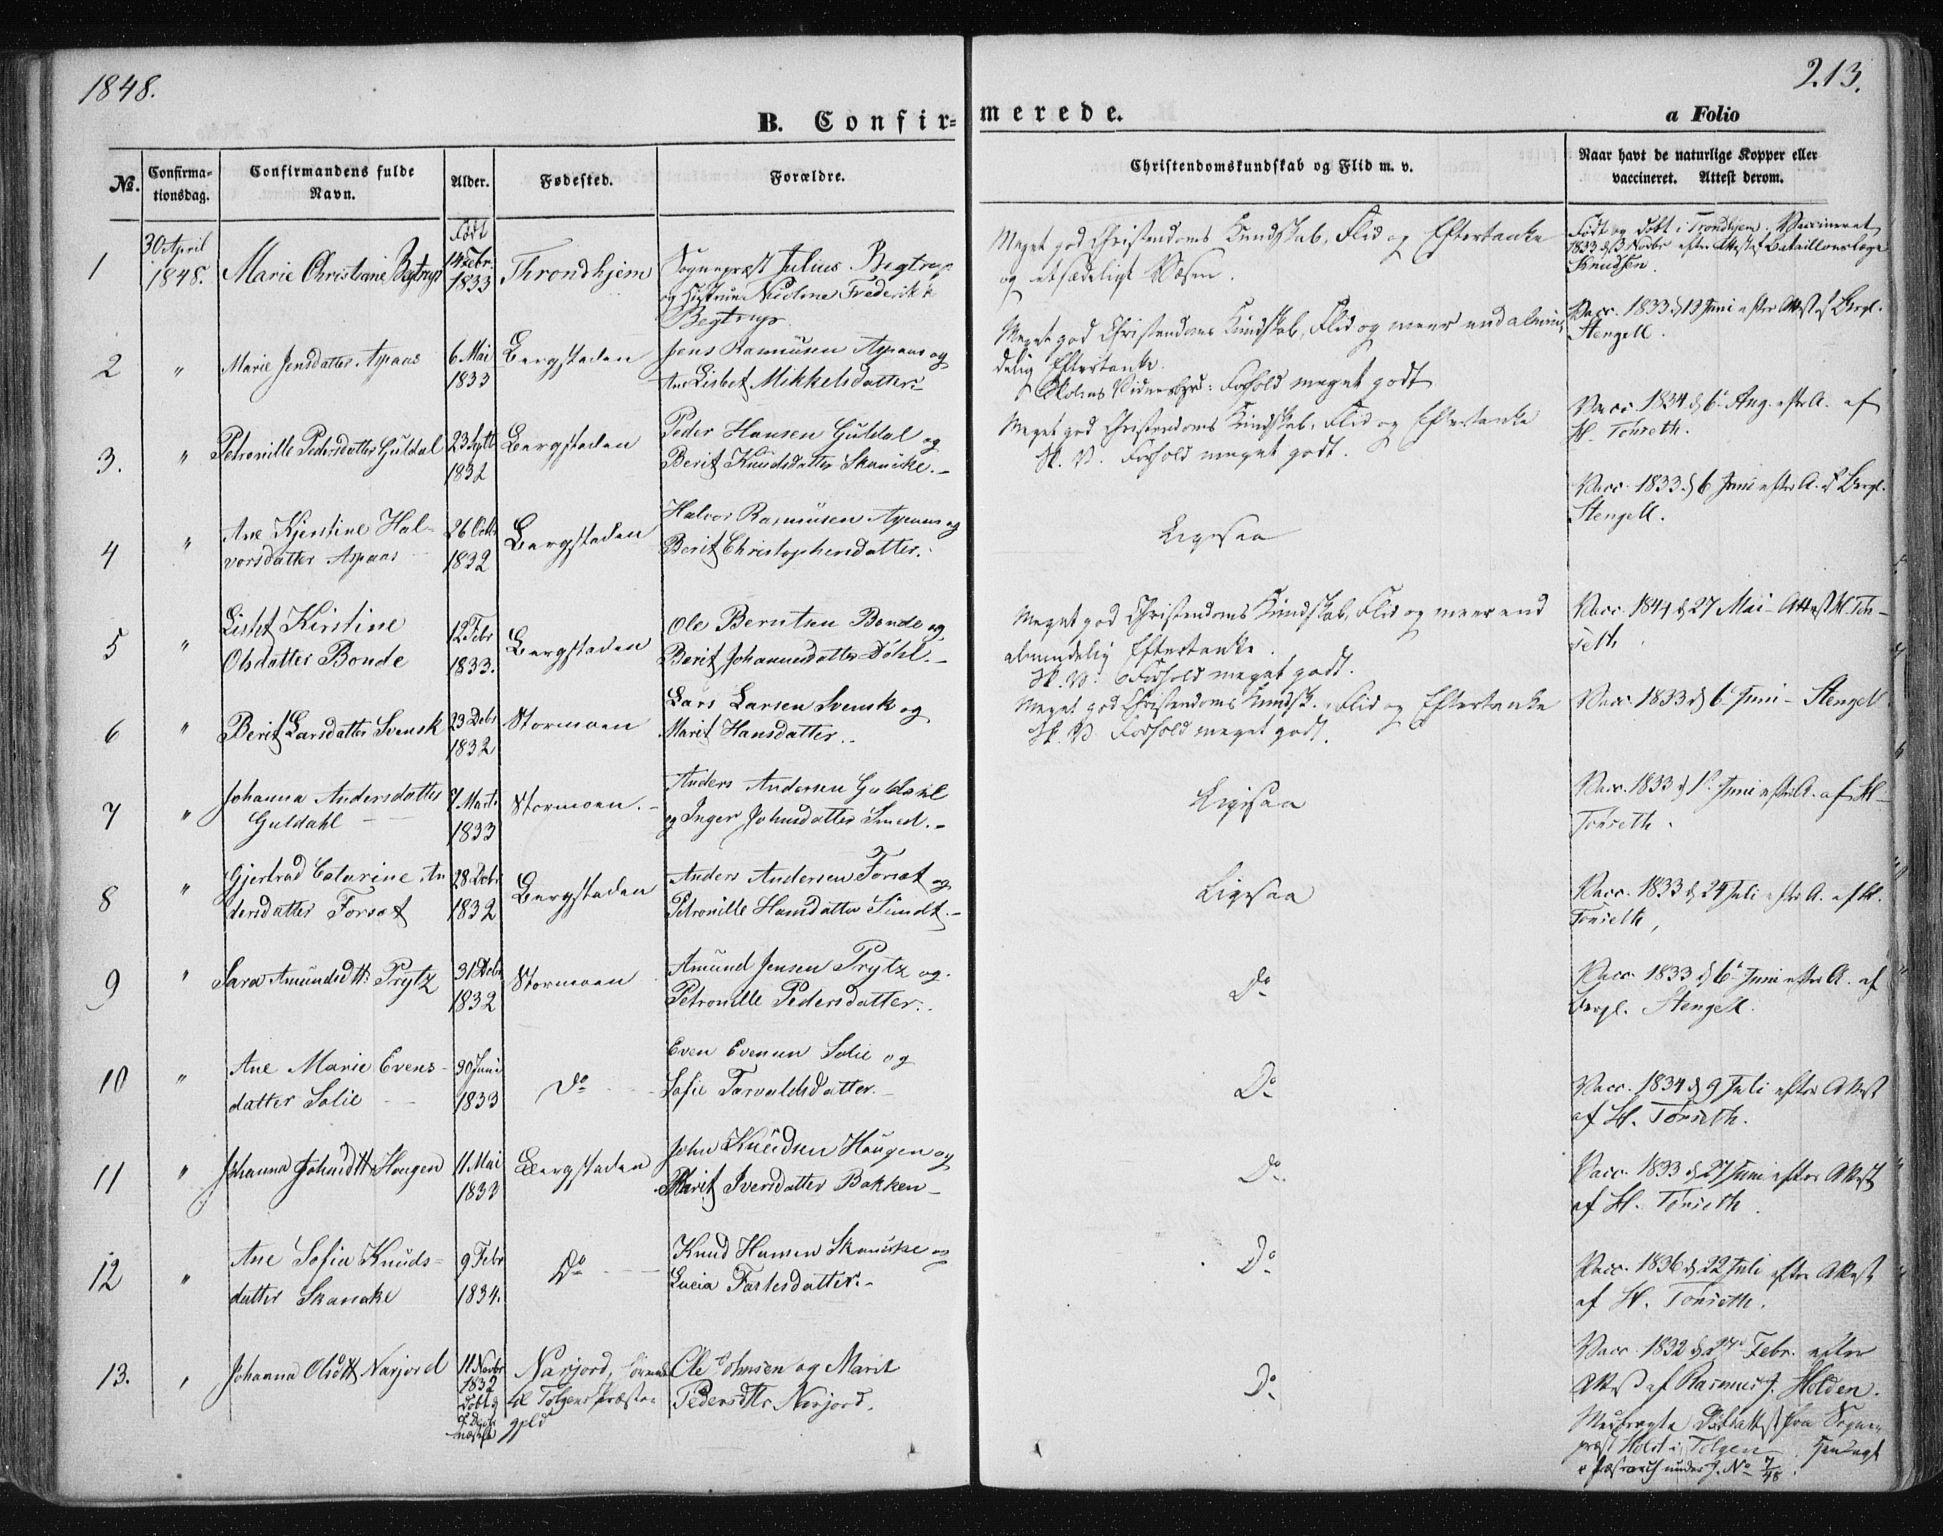 1848.
213.
B. Confir=
merede.
a Folio
No.
Confirma-
tionsdag.
Confirmandens fulde
Navn.
Alder.
Fødested.
Forældre.
Christendomskundskab og Flid m. v.
Naar havt de naturlige Kopper eller
vaccineret. Attest derom.
1
30 April
1848.
Marie Christiane Begtrup
Født
14 Febr
1833
Throndhjem
Sognepræst Julius Begtrup
og Hustrue Nicoline Frederikke
Begtrup.
Meget god Christendoms Kundskab, Flid og Eftertanke
og et sædeligt Væsen.
Født og døbt i Trondhjem. Vaccineret
1833 d 3 Novbr efter Attest af Bataillonslæge
Knudsen.
2
"
Marie Jensdatter Aspaas
6 Mai
1833
Bergstaden
Jens Rasmusen Aspaas og
Ane Lisbet Mikkelsdatter.
Meget god Christendoms Kundskab, Flid og meer end almin-
delig Eftertanke.
Skolens Vidnesbyrd: Forhold meget godt
Vacc. 1833 d 13 Juni efter Attest af Bergl.
Stengell.
3.
"
Petronille Pedersdatter Guldal
23 Septbr
1832
Bergstaden
Peder Hansen Guldal og
Berit Knudsdatter Skancke.
Meget god Christendoms Kundskab, Flid og Eftertanke
Sk. V. Forhold meget godt.
Vacc. 1834 d 6 Aug. efter A. af
H. Tønseth.
4
"
Ane Kjerstine Hal-
vorsdatter Aspaas
26 Octbr
1832
Bergstaden
Halvor Rasmusen Aspaas og
Berit Christophersdatter.
Ligesaa
Vacc. 1833 d 6 Juni efter A. af Bergl.
Stengell.
5
"
Lisbet Kirstine
Olsdatter Bonde
12 Febr
1833.
Bergstaden
Ole Berntsen Bonde og
Berit Johannesdatter Döhl.
Meget god Christendoms Kundskab, Flid og meer end
almindelig Eftertanke.
Sk. V. Forhold meget godt.
Vacc. 1841 d 27 Mai - Attest H. Tøn-
seth
6
"
Berit Larsdatter Svensk
23 Debr
1832
Stormoen
Lars Larsen Svensk og
Marit Hansdatter.
Meget god Christendoms Kundsk., Flid og Eftertanke
Sk. V. Forhold meget godt.
Vacc. 1833 d 6 Juni - Stengell
7
"
Johanna Andersdatter
Guldahl
7 Marts
1833
Stormoen.
Anders Andersen Guldahl
og Inger Johnsdatter Smed.
Ligesaa
Vacc. 1833 d 1 Juni efter A. af H
Tønseth.
8
"
Gjertrud Catarine An
dersdatter Forsæt
28 Debr
1832
Bergstaden
Anders Andersen Forsæt og
Petronille Hansdatter Sundt.
Ligesaa
Vacc. 1833 d 24 Juli efter A. af H.
Tønseth,
9
"
Sara Amundsdtt: Prytz
31 Debr
1832
Stormoen
Amund Jensen Prytz og
Petronille Pedersdatter.
Do
Vacc. 1833 d 6 Juni efter A. af
Bergl. Stengell.
10
"
Ane Marie Evens-
datter Solie
30 Juni
1833
Do
Even Evensen Solie og
Sofie Tarvaldsdatter.
Do
Vacc. 1834 d 9 Juli efter Attest
af H. Tønseth.
11
"
Johanna Johnsdtt: Haugen
11 Mai
1833
Bergstaden
John Knudsen Haugen og
Marit Iversdatter Bakken
Do
Vacc. 1833 d 27 Juni efter Attest
af H. Tønseth.
12
"
Ane Sofia Knuds-
datter Skancke
9 Febr
1834.
Do
Knud Hansen Skancke og
Lucia Tørresdatter.
Do
Vacc. 1836 d 22 Juli efter Attest
af H. Tønseth.
13.
Johanna Olsdtt Narjord
11 Novbr
1832
Døbt
Narjord,
til Tolgens Præste-
gjeld
Ole Johnsen og Marit
Pedersdtr Narjord.
Do
Vacc. 1832 d 27 Febr. efter
Attest af Rasmus J. Holden.
Medbragte Døbeattest fra Sogne-
præst Holst i Tolgen.
under J. No 7/48.